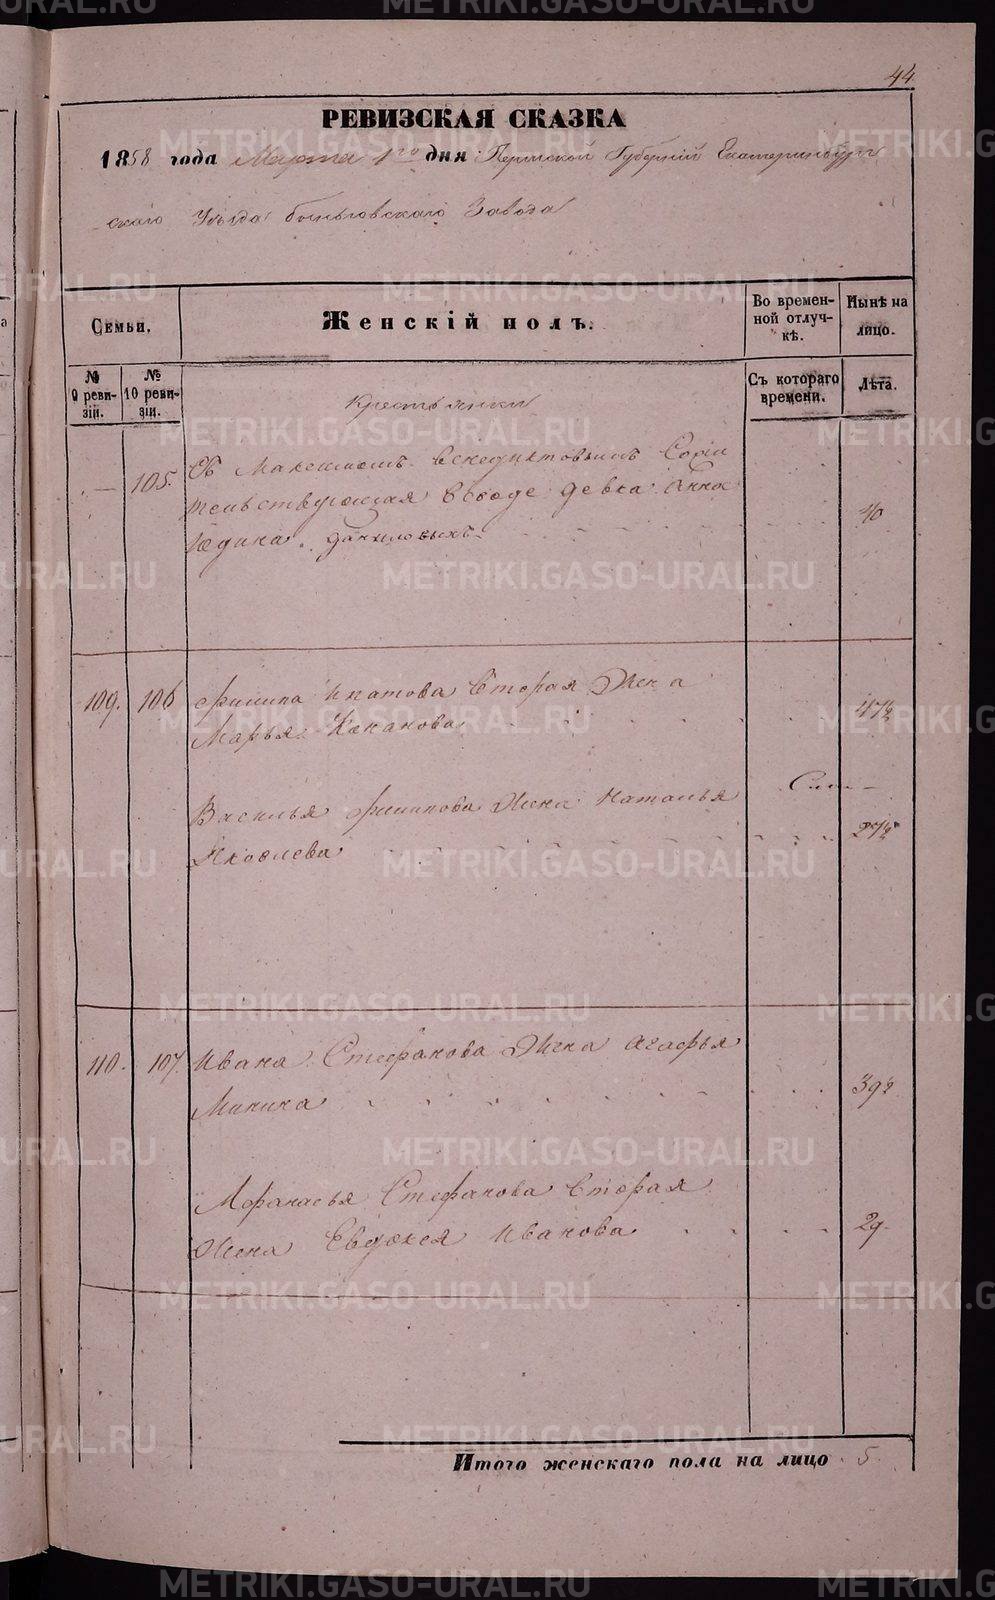 44
РЕВИЗСКАЯ СКАЗКА
1858 года Марта 1го дня Пермской Губерніи Екатеринбург
скаго Уѣзда Быньговскаго Завода
Семьи.
Женскій полъ.
Во времен-
ной отлуч-
кѣ.
Нынѣ на
лицо.
№
9 реви-
зіи.
№
10 реви-
зіи.
Съ котораго
времени.
Лѣта.
Крестьянки
105. Съ Максимомъ Венедиктовымъ
девка Анна
Даниловыхъ 40
109. 106 Филипа Ипатова Вторая Жена
Марья Кананова 47½
Василья Филипова Жена Наталья
Яковлева 27½
110. 107. Ивана Стефанова Жена Агафья
Минина 39½
Афанасья Стефанова Вторая
Жена Евдокея Иванова 29.
Итого женскаго пола на лицо 5.
METRIKI.GASO-URAL.RU